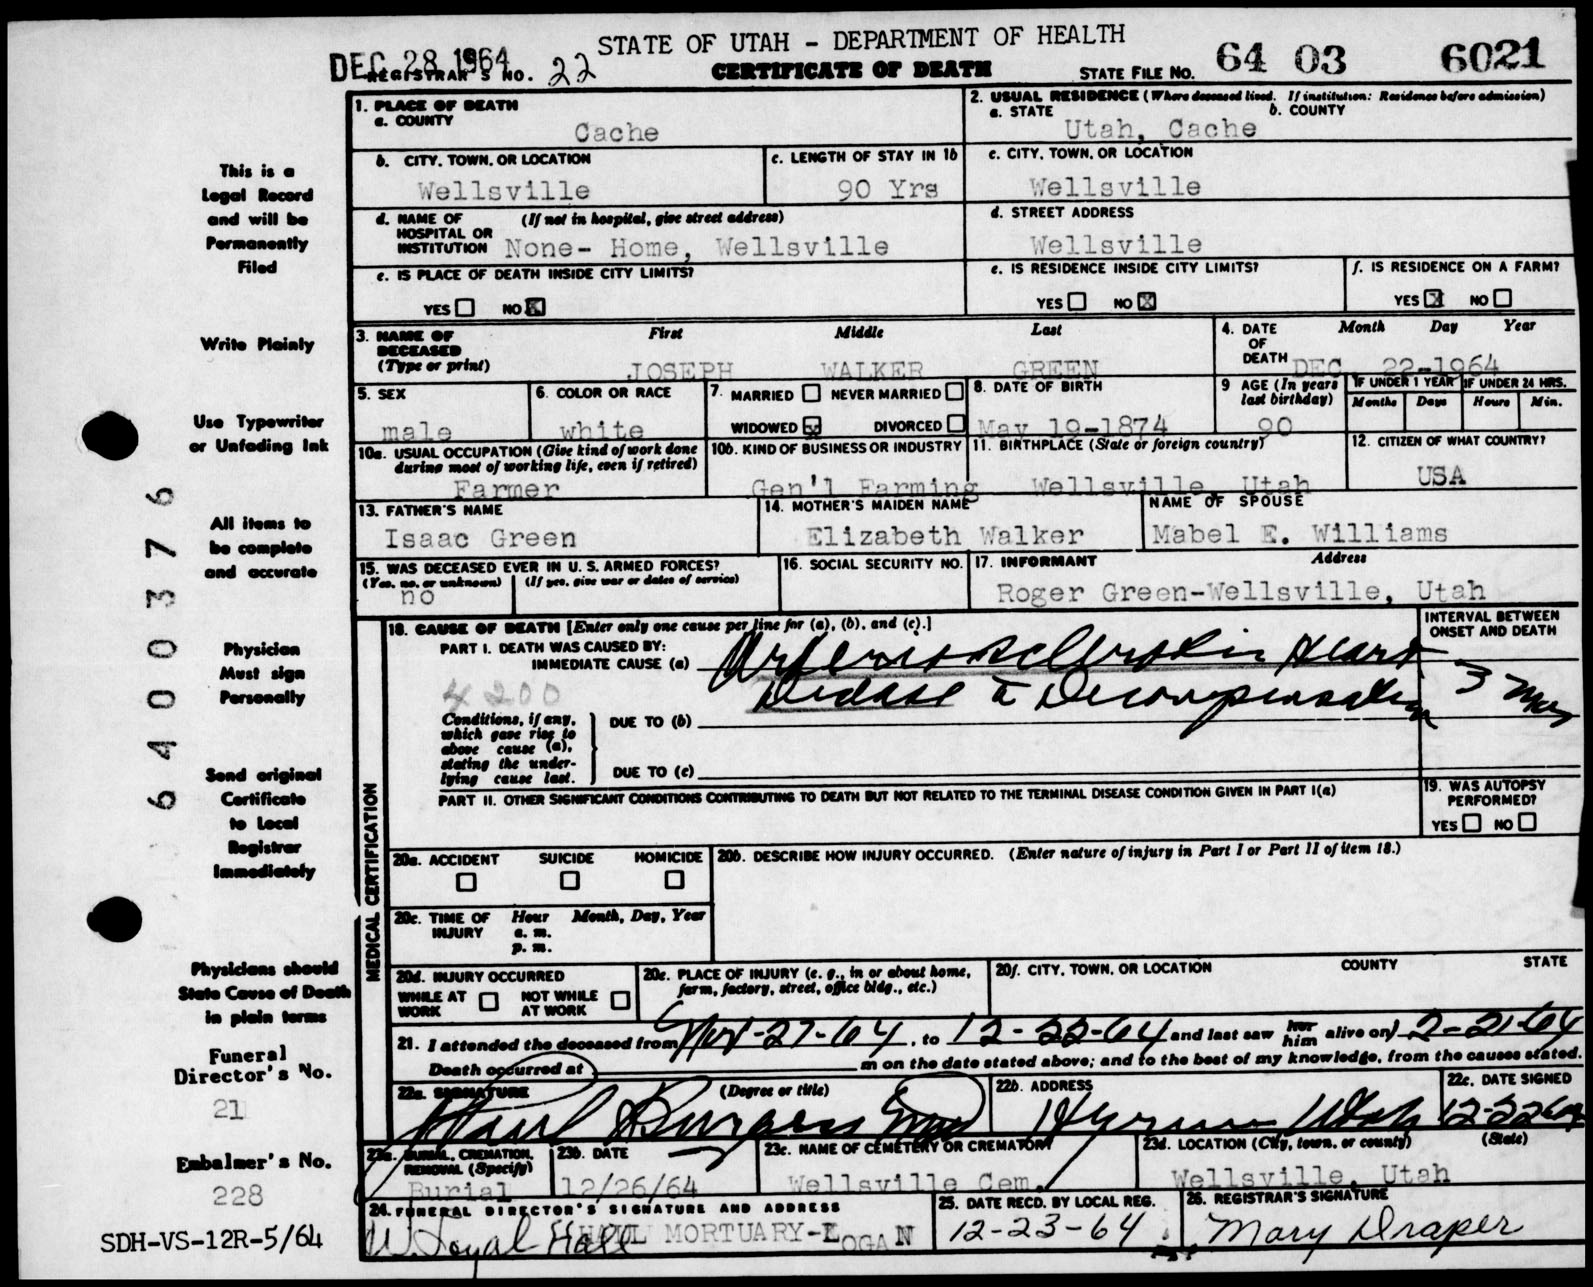 DEC 28 1964
STATE OF UTAH - DEPARTMENT OF HEALTH
REGISTRAR'S NO. 22
CERTIFICATE OF DEATH
STATE FILE NO. 64 03 6021
1. PLACE OF DEATH
a. COUNTY
Cache
2. USUAL RESIDENCE (Where deceased lived. If institution: Residence before admission)
a. STATE b. COUNTY
Utah, Cache
b. CITY, TOWN, OR LOCATION
Wellsville
c. LENGTH OF STAY IN 1b
90 Yrs
c. CITY, TOWN, OR LOCATION
Wellsville
d. NAME OF (If not in hospital, give street address)
HOSPITAL OR
INSTITUTION None- Home, Wellsville
d. STREET ADDRESS
Wellsville
e. IS PLACE OF DEATH INSIDE CITY LIMITS?
YES NO X
e. IS RESIDENCE INSIDE CITY LIMITS?
YES NO X
f. IS RESIDENCE ON A FARM?
YES X NO
3. NAME OF First Middle Last
DECEASED
(Type or print)
JOSEPH WALKER GREEN
4. DATE Month Day Year
OF
DEATH DEC 22-1964
5. SEX
male
6. COLOR OR RACE
white
7. MARRIED NEVER MARRIED
WIDOWED X DIVORCED
8. DATE OF BIRTH
May 19-1874
9 AGE (In years
last birthday)
90
IF UNDER 1 YEAR IF UNDER 24 HRS.
Months Days Hours Min.
10a. USUAL OCCUPATION (Give kind of work done
during most of working life, even if retired)
Farmer
10b. KIND OF BUSINESS OR INDUSTRY
Gen'l Farming
11. BIRTHPLACE (State or foreign country)
Wellsville, Utah
12. CITIZEN OF WHAT COUNTRY?
USA
13. FATHER'S NAME
Isaac Green
14. MOTHER'S MAIDEN NAME
Elizabeth Walker
NAME OF SPOUSE
Mabel E. Williams
15. WAS DECEASED EVER IN U. S. ARMED FORCES?
(Yes, no, or unknown) (If yes, give war or dates of service)
no
16. SOCIAL SECURITY NO.
17. INFORMANT Address
Roger Green-Wellsville, Utah
MEDICAL CERTIFICATION
18. CAUSE OF DEATH [Enter only one cause per line for (a), (b), and (c).]
INTERVAL BETWEEN
ONSET AND DEATH
PART I. DEATH WAS CAUSED BY:
IMMEDIATE CAUSE (a) Arteriosclerotic Heart
Disease c̄ Decompensation 3 mos
4200
Conditions, if any,
which gave rise to
above cause (a),
stating the under-
lying cause last.
DUE TO (b)
DUE TO (c)
PART II. OTHER SIGNIFICANT CONDITIONS CONTRIBUTING TO DEATH BUT NOT RELATED TO THE TERMINAL DISEASE CONDITION GIVEN IN PART I(a)
19. WAS AUTOPSY
PERFORMED?
YES NO
20a. ACCIDENT SUICIDE HOMICIDE
20b. DESCRIBE HOW INJURY OCCURRED. (Enter nature of injury in Part I or Part II of item 18.)
20c. TIME OF Hour Month, Day, Year
INJURY a. m.
p. m.
20d. INJURY OCCURRED
WHILE AT NOT WHILE
WORK AT WORK
20e. PLACE OF INJURY (e. g., in or about home,
farm, factory, street, office bldg., etc.)
20f. CITY, TOWN, OR LOCATION COUNTY STATE
21. I attended the deceased from Nov-27-64, to 12-22-64 and last saw her him alive on 12-21-64
Death occurred at m on the date stated above; and to the best of my knowledge, from the causes stated.
22a. SIGNATURE (Degree or title)
Paul Burgess
22b. ADDRESS
Hyrum Utah
22c. DATE SIGNED
12-22-64
23a. BURIAL, CREMATION,
REMOVAL (Specify)
Burial
23b. DATE
12/26/64
23c. NAME OF CEMETERY OR CREMATORY
Wellsville Cem.
23d. LOCATION (City, town, or county) (State)
Wellsville, Utah
24. FUNERAL DIRECTOR'S SIGNATURE AND ADDRESS
W. Loyal Hall HALL MORTUARY-LOGAN
25. DATE RECD. BY LOCAL REG.
12-23-64
26. REGISTRAR'S SIGNATURE
Mary Draper
This is a
Legal Record
and will be
Permanently
Filed
Write Plainly
Use Typewriter
or Unfading Ink
All items to
be complete
and accurate
Physician
Must sign
Personally
Send original
Certificate
to Local
Registrar
Immediately
Physicians should
State Cause of Death
in plain terms
Funeral
Director's No.
21
Embalmer's No.
228
SDH-VS-12R-5/64
6400376